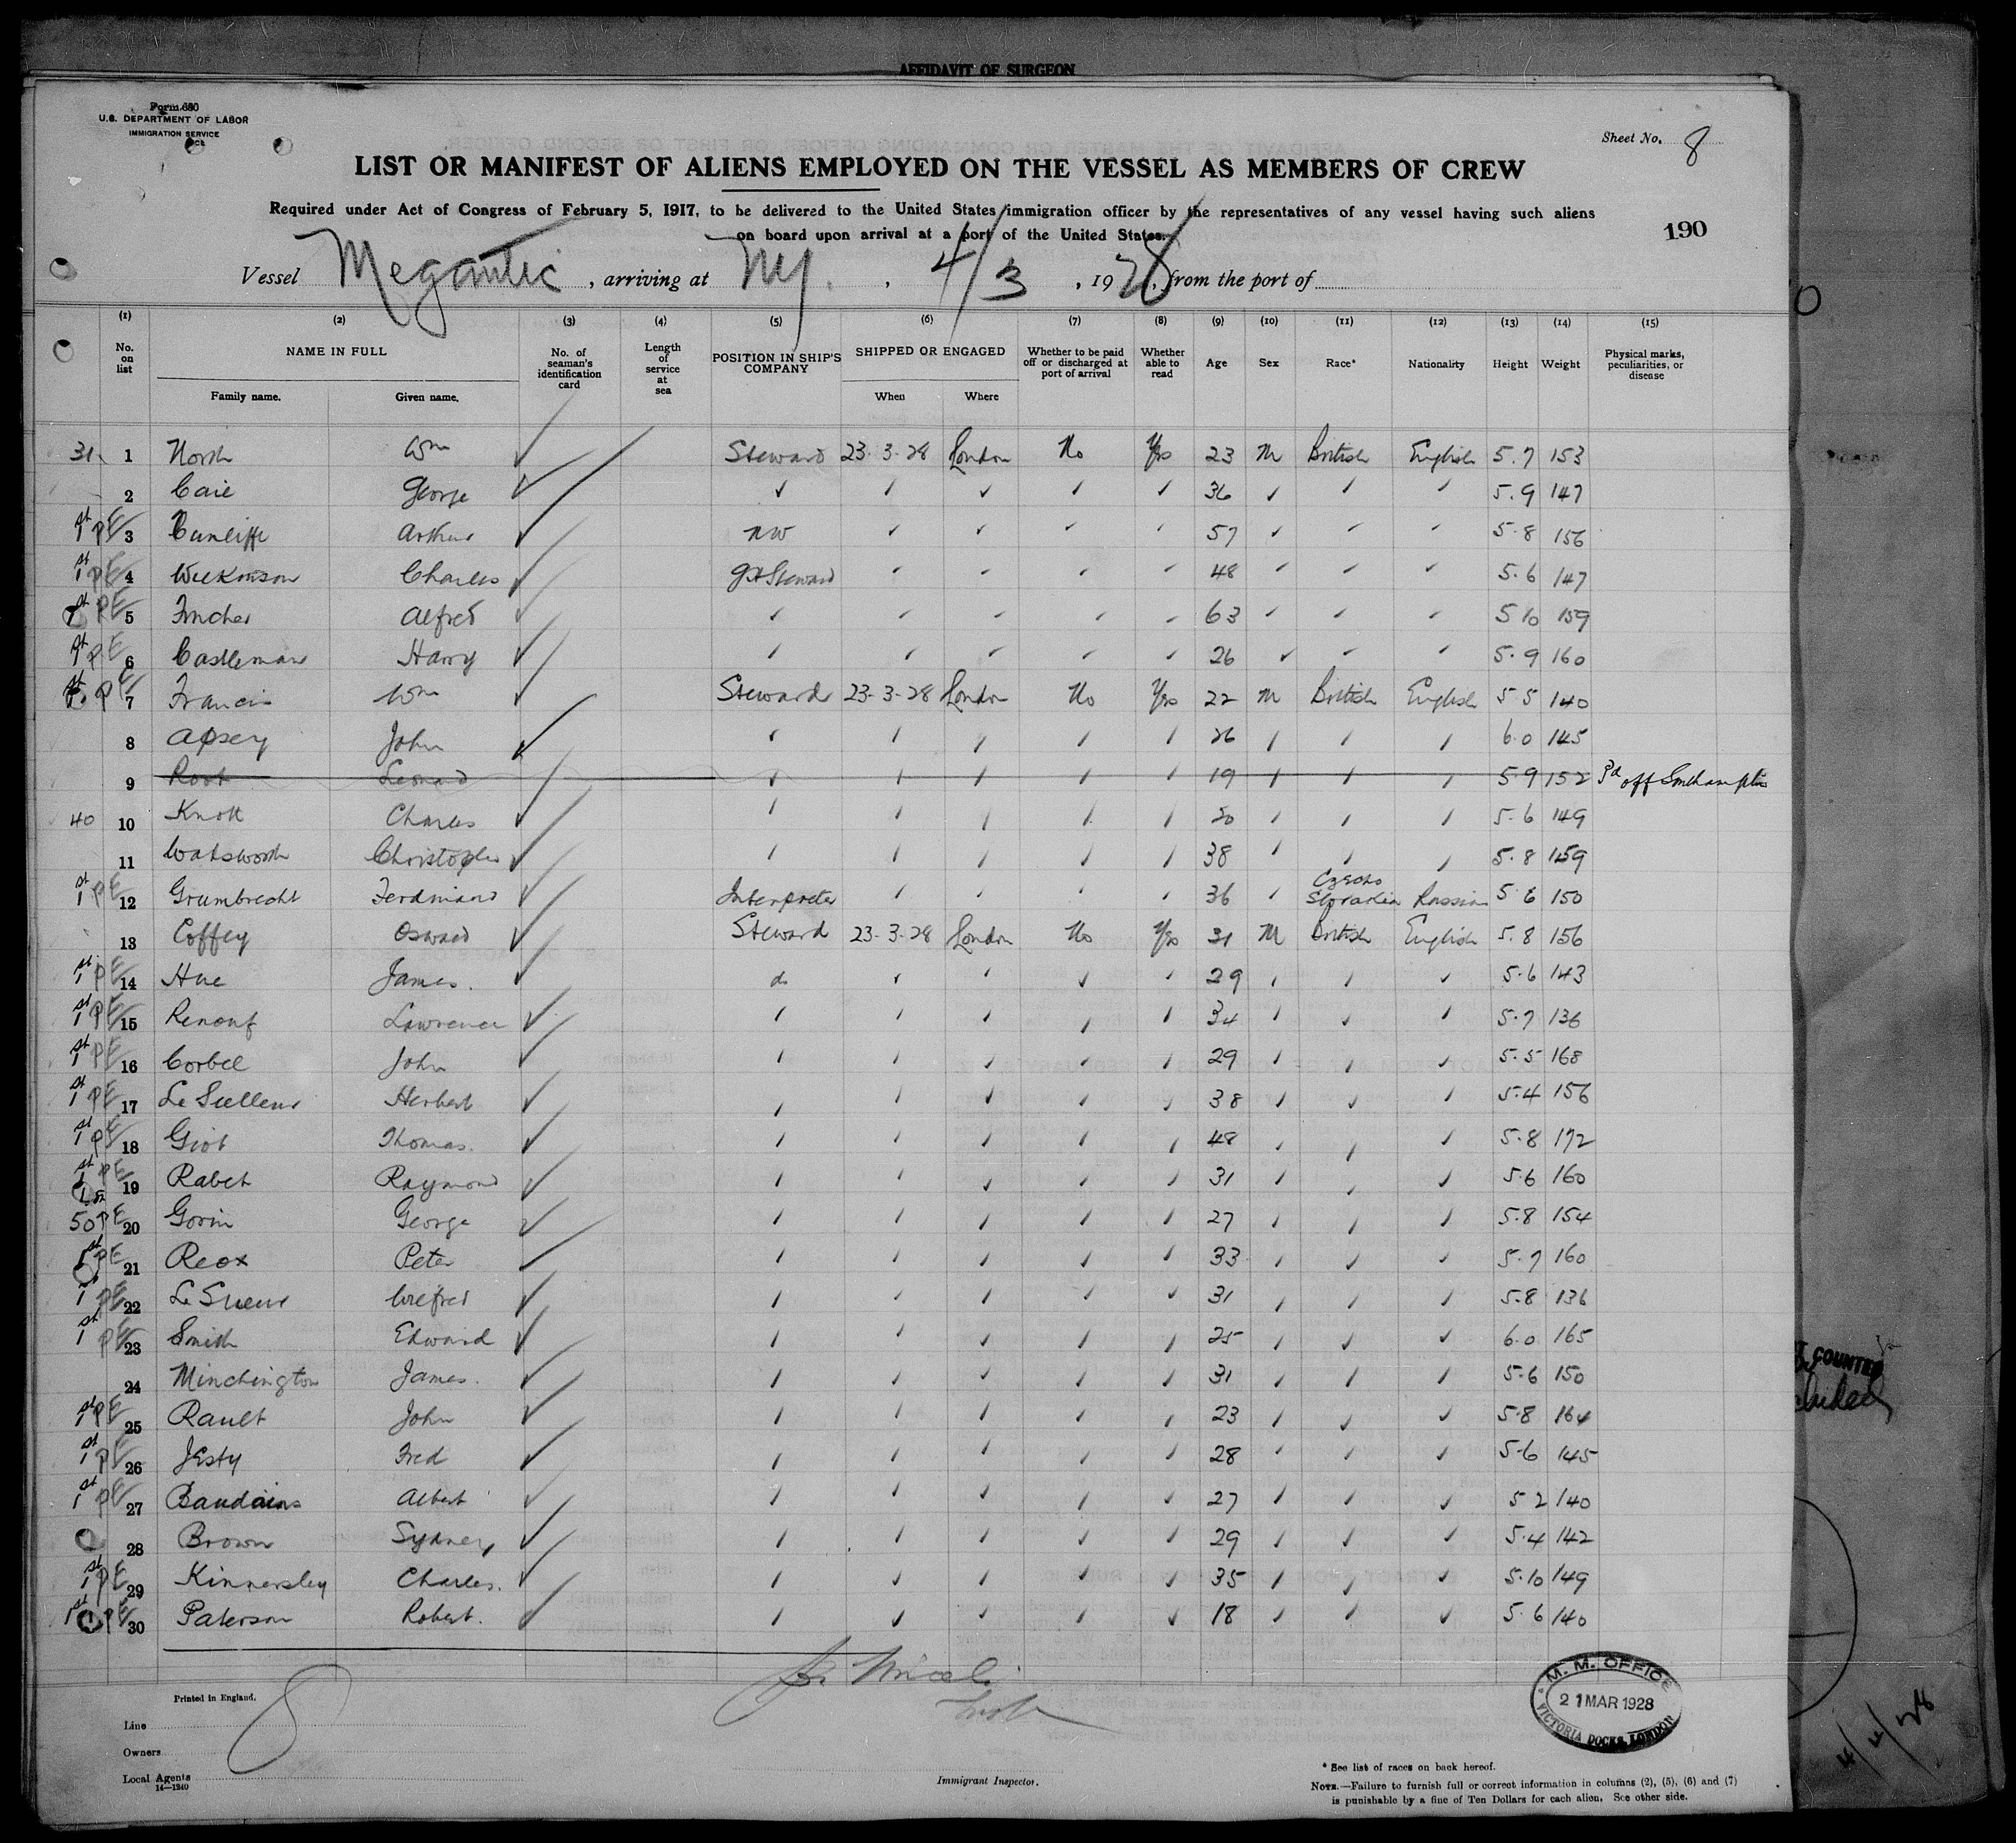 AFFIDAVIT OF SURGEON
Form 680
U.S. DEPARTMENT OF LABOR
IMMIGRATION SERVICE
Sheet No. 8
LIST OR MANIFEST OF ALIENS EMPLOYED ON THE VESSEL AS MEMBERS OF CREW
Required under Act of Congress of February 5, 1917, to be delivered to the United States immigration officer by the representatives of any vessel having such aliens
on board upon arrival at a port of the United States.
190
Vessel Megantic, arriving at NY. , 4/3, 1928, from the port of
(1) (2) (3) (4) (5) (6) (7) (8) (9) (10) (11) (12) (13) (14) (15)
No. on list NAME IN FULL No. of seaman's identification card Length of service at sea POSITION IN SHIP'S COMPANY SHIPPED OR ENGAGED Whether to be paid off or discharged at port of arrival Whether able to read Age Sex Race* Nationality Height Weight Physical marks, peculiarities, or disease
Family name. Given name. When Where
31 1 North Wm ✓ Steward 23-3-28 London No Yes 23 M British English 5.7 153
2 Caie George ✓ ✓ ✓ ✓ ✓ ✓ 36 ✓ ✓ ✓ 5.9 147
1st PE 3 Cunliffe Arthur ✓ NW ✓ ✓ ✓ ✓ 57 ✓ ✓ ✓ 5.8 156
1st PE 4 Wilkinson Charles ✓ Steward ✓ ✓ ✓ ✓ 48 ✓ ✓ ✓ 5.6 147
1st PE 5 Fincher Alfred ✓ ✓ ✓ ✓ ✓ ✓ 63 ✓ ✓ ✓ 5 10 159
1st PE 6 Castleman Harry ✓ ✓ ✓ ✓ ✓ ✓ 26 ✓ ✓ ✓ 5.9 160
1st PE 7 Francis Wm ✓ Steward 23-3-28 London No Yes 22 M British English 5 5 140
8 Apsey John ✓ ✓ ✓ ✓ ✓ ✓ 26 ✓ ✓ ✓ 6.0 145
9 Root Leonard ✓ ✓ ✓ ✓ ✓ 19 ✓ ✓ ✓ 5 9 152 Pd off Southampton
40 10 Knott Charles ✓ ✓ ✓ ✓ ✓ ✓ 20 ✓ ✓ ✓ 5.6 149
11 Watsworth Christopher ✓ ✓ ✓ ✓ ✓ ✓ 38 ✓ ✓ ✓ 5.8 159
1st PE 12 Grumbrecht Ferdinand ✓ Interpreter ✓ ✓ ✓ ✓ 36 ✓ Czecho Slovakia Russian 5 6 150
13 Coffey Oswald ✓ Steward 23-3-28 London No Yes 31 M British English 5.8 156
1st PE 14 Hue James. ✓ do ✓ ✓ ✓ ✓ 29 ✓ ✓ ✓ 5.6 143
1st PE 15 Renouf Lawrence ✓ ✓ ✓ ✓ ✓ ✓ 34 ✓ ✓ ✓ 5.7 136
1st PE 16 Corbel John ✓ ✓ ✓ ✓ ✓ ✓ 29 ✓ ✓ ✓ 5.5 168
1st PE 17 Le Herbert ✓ ✓ ✓ ✓ ✓ ✓ 38 ✓ ✓ ✓ 5.4 156
1st PE 18 Giot Thomas. ✓ ✓ ✓ ✓ ✓ ✓ 48 ✓ ✓ ✓ 5.8 172
1st PE 19 Rabet Raymond ✓ ✓ ✓ ✓ ✓ ✓ 31 ✓ ✓ ✓ 5.6 160
50 PE 20 Gorin George ✓ ✓ ✓ ✓ ✓ ✓ 27 ✓ ✓ ✓ 5.8 154
1st PE 21 Reox Peter ✓ ✓ ✓ ✓ ✓ ✓ 33 ✓ ✓ ✓ 5.7 160
1 PE 22 Le Sueur Wilfred ✓ ✓ ✓ ✓ ✓ ✓ 31 ✓ ✓ ✓ 5.8 136
1st PE 23 Smith Edward ✓ ✓ ✓ ✓ ✓ ✓ 25 ✓ ✓ ✓ 6.0 165
24 Minchington James. ✓ ✓ ✓ ✓ ✓ ✓ 31 ✓ ✓ ✓ 5.6 150
1st PE 25 Rault John ✓ ✓ ✓ ✓ ✓ ✓ 23 ✓ ✓ ✓ 5.8 164
1st PE 26 Jesty Fred ✓ ✓ ✓ ✓ ✓ ✓ 28 ✓ ✓ ✓ 5.6 145
1st PE 27 Baudains Albert ✓ ✓ ✓ ✓ ✓ ✓ 27 ✓ ✓ ✓ 5 2 140
28 Brown Sydney ✓ ✓ ✓ ✓ ✓ ✓ 29 ✓ ✓ ✓ 5.4 142
1st PE 29 Kinnersley Charles. ✓ ✓ ✓ ✓ ✓ ✓ 35 ✓ ✓ ✓ 5.10 149
1st PE 30 Paterson Robert. ✓ ✓ ✓ ✓ ✓ ✓ 18 ✓ ✓ ✓ 5.6 140
Printed in England.
8
M. M. OFFICE
21 MAR 1928
VICTORIA DOCKS, LONDON
Line
Owners
Local Agents
14—1240
Immigrant Inspector.
* See list of races on back hereof.
NOTE.—Failure to furnish full or correct information in columns (2), (5), (6) and (7)
is punishable by a fine of Ten Dollars for each alien. See other side.
COUNTED
4/4/28